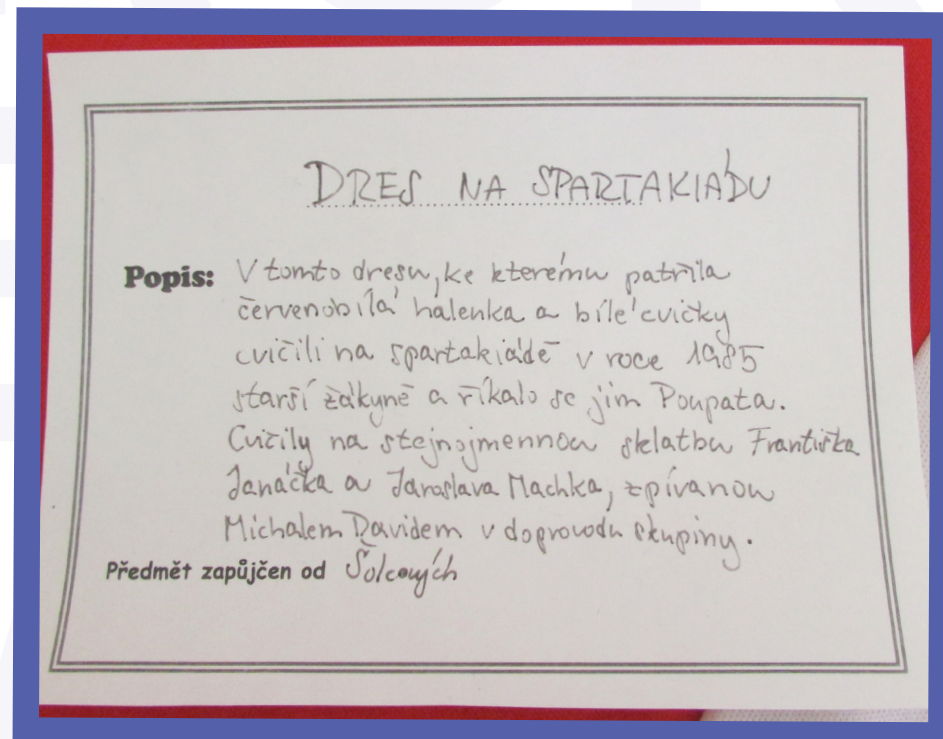 DRES NA SPARTAKIÁDU
Popis: V tomto dresu, ke kterému patřila
červenobílá halenka a bílé cvičky
cvičili na spartakiádě v roce 1985
starší žákyně a říkalo se jim Poupata.
Cvičily na stejnojmennou skladbu Františka
Janáčka a Jaroslava Machka, zpívanou
Michalem Davidem v doprovodu skupiny.
Předmět zapůjčen od Šolcových